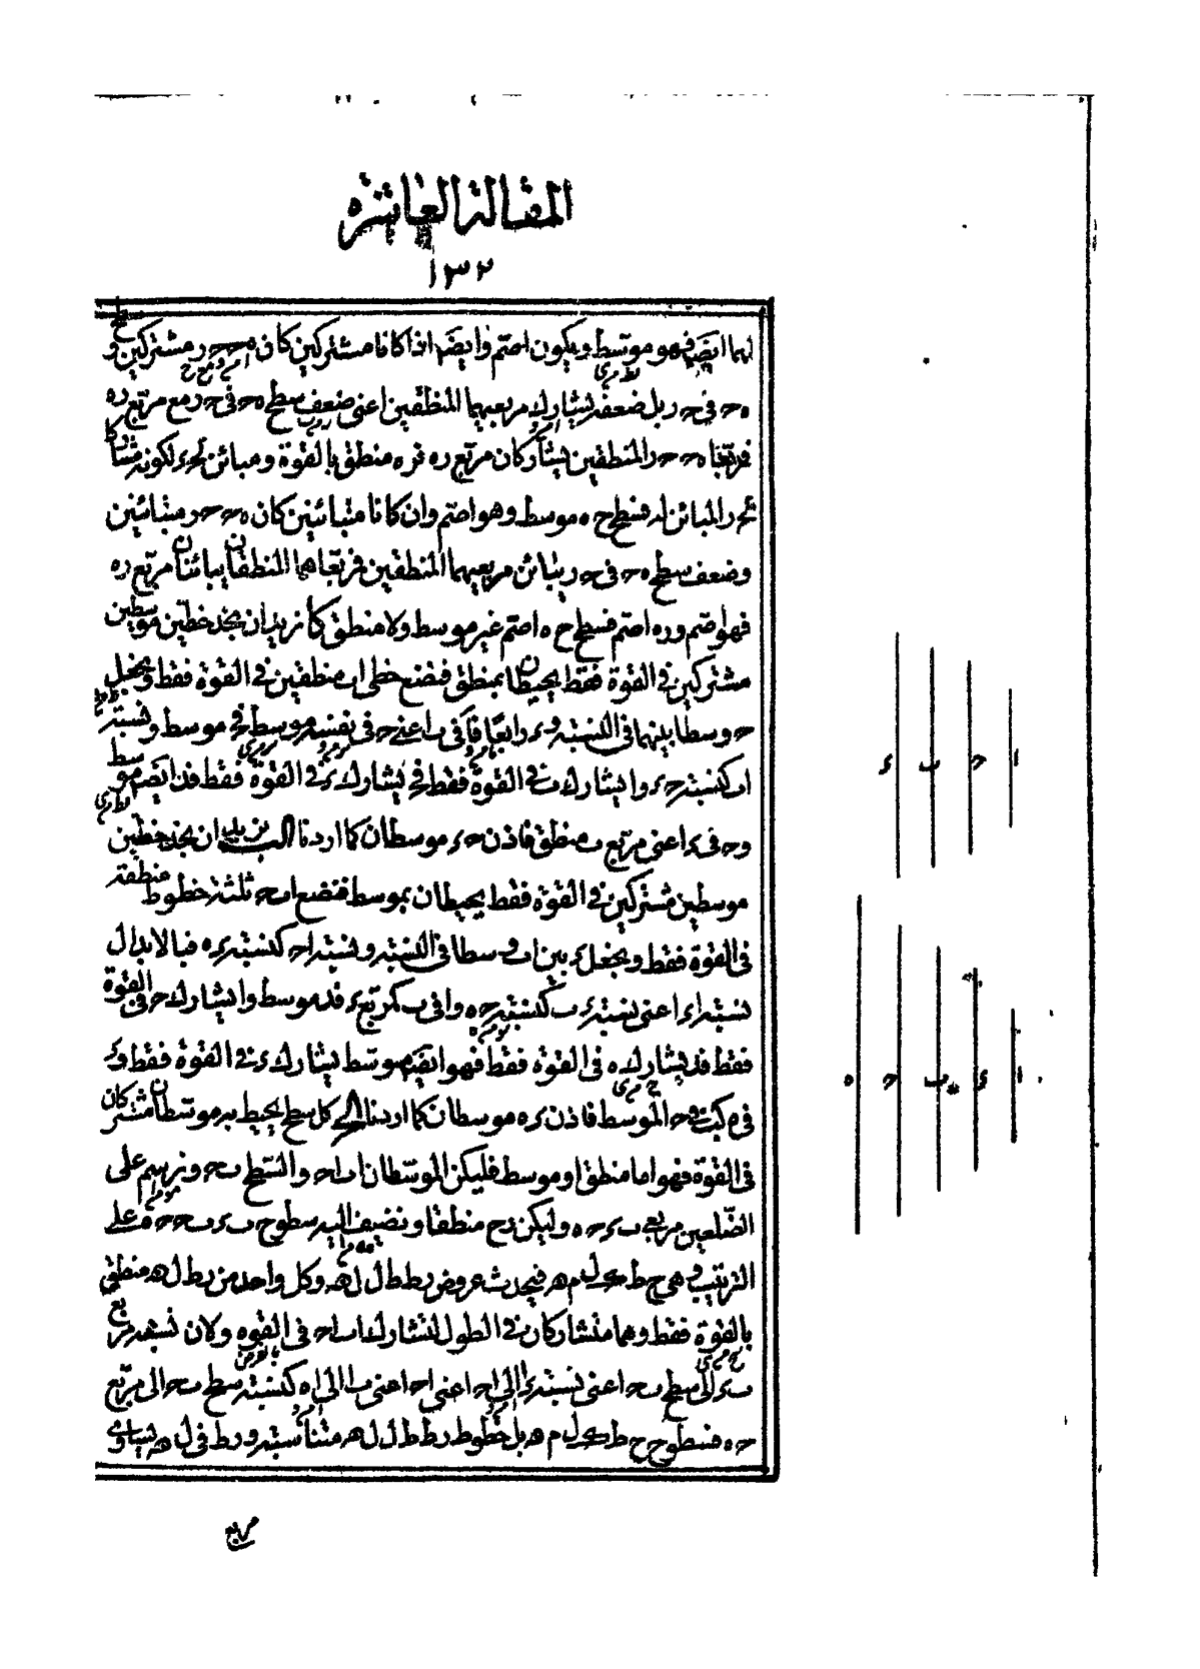 المقالة العاشرة
١٣٢
لهما ايضا فهو موسط ويكون اصم وايضا اذا كانا مشتركين كان ه ح ح ر مشتركين و
ه ح في ح ر بل ضعفه يشارك مربعيهما المنطقين اعنى ضعف سطح ه ح في ح ر مع مربع ره
فمربعا ه ح ح ر المنطقين يشارك ان مربع ره فره منطق بالقوة ومباين لح د لكونه مشاركا
لح ر المباين له فسطح ح ه موسط وهو اصم وان كانا متباينين كان ه ح ح ر متباينين
وضعف سطح ه ح في ح ر يباين مربعيهما المنطقين فمربعاهما المنطقان يباينان مربع ره
فهو اصم وره اصم فسطح ح ه اصم غير موسط ولا منطق كا نريد ان نجد خطين موسطين
مشتركين في القوة فقط يحيطان بمنطق فنضع خطى ا ب منطقين في القوة فقط ونجعل
ح وسطا بينهما في النسبة و د رابعا فا في ب اعنى ح في نفسه موسط فح موسط ونسبة
ا ب كنسبة ح د وا يشارك ب في القوة فقط فح يشارك د في القوة فقط فد ايضا موسط
وح في د اعنى مربع ب منطق فاذن ح د موسطان كما اردنا كب نريد ان نجد خطين
موسطين مشتركين في القوة فقط يحيطان بموسط فنضع ا ب ح ثلثة خطوط منطقة
في القوة فقط ونجعل د بين ا ب وسطا في النسبة ونسبة ا ح كنسبة د ه فبالابدال
نسبة ا د اعنى نسبة د ب كنسبة ح ه وا في ب كمربع د فد موسط وا يشارك ح في القوة
فقط فد يشارك ه في القوة فقط فهو ايضا موسط يشارك د في القوة فقط ود
في ه كب في ح الموسط فاذن د ه موسطان كما اردنا كح كل سطح يحيط به موسطان مشتركان
في القوة فهو اما منطق او موسط فليكن الموسطان ا ب ا ح والسطح ب ح ونرسم على
الضلعين مربعى ب د ح ه وليكن رح منطقا ونضيف اليه سطوح ب د ب ح ح ه على
الترتيب وهى ح ط ط ك ل م هر فيحدث عروض رط ط ل ل هـ وكل واحد من رط ل هـ منطق
بالقوة فقط وهما متشاركان في الطول لتشارك ا ب ا ح في القوه ولان نسبة مربع
ب د الى سطح ب ح اعنى نسبة د ا الى ا ح اعنى ا ح اعنى ب ا الى ا ه كنسبة سطح ب ح الى مربع
ح ه فسطوح ح ط ط ك ل م هر بل خطوط رط ط ل ل هـ متناسبة ورط في ل هـ يساوى
مربع
ا ح ب د
ا د ب ح ه